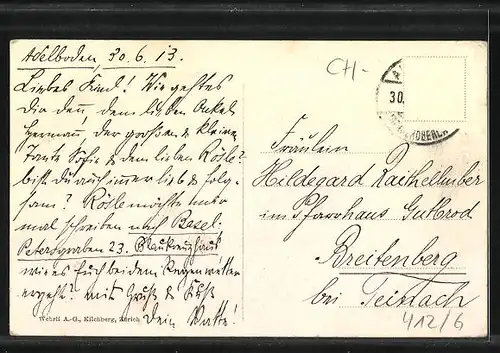 Adelboden, 30.6.13.
Liebes Kind! Wie geht es
dir denn, dem lieben Onkel
Hermann, der großen & kleinen
Tante Sofie & dem lieben Rösle?
bist du auch immer lieb & folg-
sam? Rösle möchte mir
mal schreiben nach Basel:
Petersgraben 23. Blaukreuzhaus
wie es Euch bei dem Regenwetter
ergeht? mit Gruß & Kuß
Dein Vatter!
Wehrli A.-G., Kilchberg, Zürich
CH-
30.
Fräulein
Hildegard Raithelhuber
im Pfarrhaus Gutbrod
Breitenberg
bei Teinach
412/6